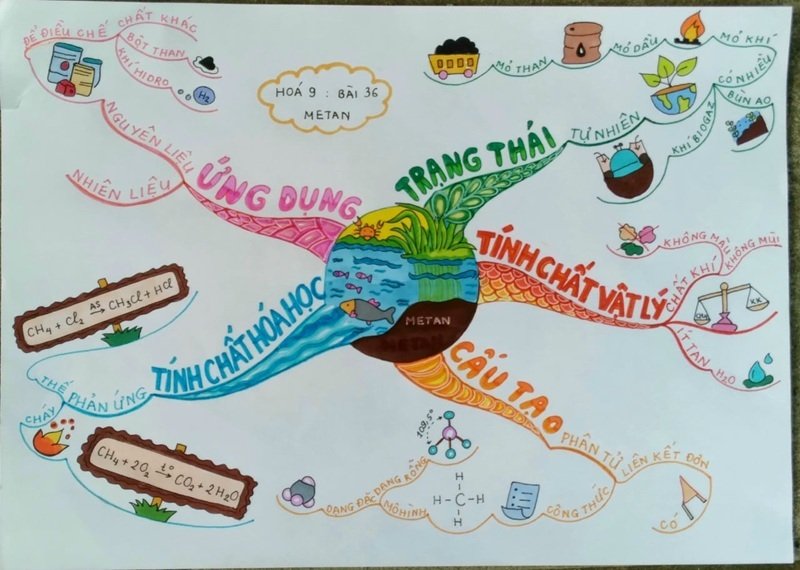 HOÁ 9 : BÀI 36
METAN
ỨNG DỤNG
NGUYÊN LIỆU
ĐỂ ĐIỀU CHẾ CHẤT KHÁC
BỘT THAN
KHÍ HIDRO
H2
NHIÊN LIỆU
TRẠNG THÁI
TỰ NHIÊN
CÓ NHIỀU
MỎ KHÍ
MỎ DẦU
MỎ THAN
BÙN AO
KHÍ BIOGAZ
TÍNH CHẤT VẬT LÝ
CHẤT KHÍ
KHÔNG MÀU
KHÔNG MÙI
CH4
KK
ÍT TAN H2O
METAN
METAN
CẤU TẠO
PHÂN TỬ
LIÊN KẾT ĐƠN
CÓ
CÔNG THỨC
H
H-C-H
H
MÔ HÌNH
DẠNG RỖNG
109,5°
DẠNG ĐẶC
TÍNH CHẤT HÓA HỌC
PHẢN ỨNG
THẾ
CH4 + Cl2 AS→ CH3Cl + HCl
CHÁY
CH4 + 2O2 t°→ CO2 + 2H2O